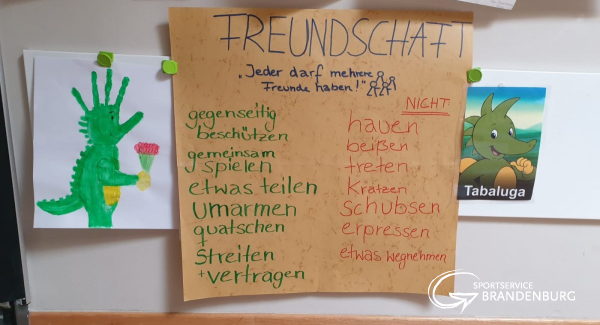 FREUNDSCHAFT
„Jeder darf mehrere
Freunde haben!"
gegenseitig
beschützen
gemeinsam
spielen
etwas teilen
umarmen
quatschen
streiten
+ vertragen
NICHT
hauen
beißen
treten
kratzen
schubsen
erpressen
etwas wegnehmen
Tabaluga
SPORTSERVICE
BRANDENBURG